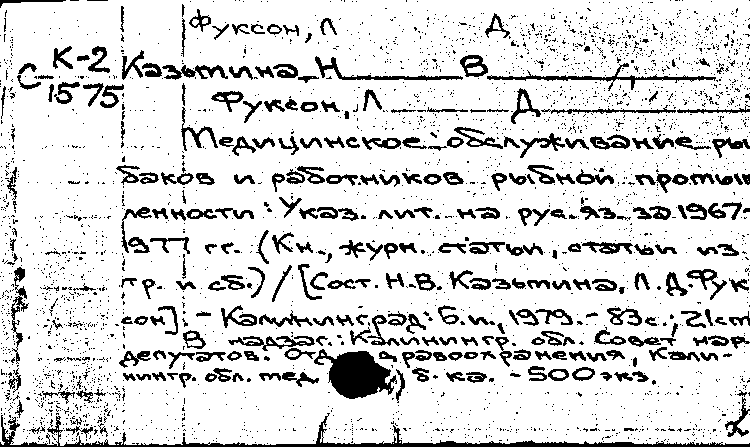 Фуксон, Л Д
К-2 Казьмина, Н В
С 1575
Фуксон, Л Д
Медицинское обслуживание ры
баков и работников рыбной промыш
ленности: Указ. лит. на рус. яз. за 1967-
1977 гг. (Кн., журн. статьи, статьи из
тр. и сб.) / [Сост. Н.В. Казьмина, Л.Д. Фук
сон]. - Калининград: Б.и., 1979. - 83с.; 21см
В надзаг.: Калинингр. обл. Совет нар.
депутатов. Отд. здравоохранения, Кали-
нингр. обл. мед. б-ка. - 500 экз.